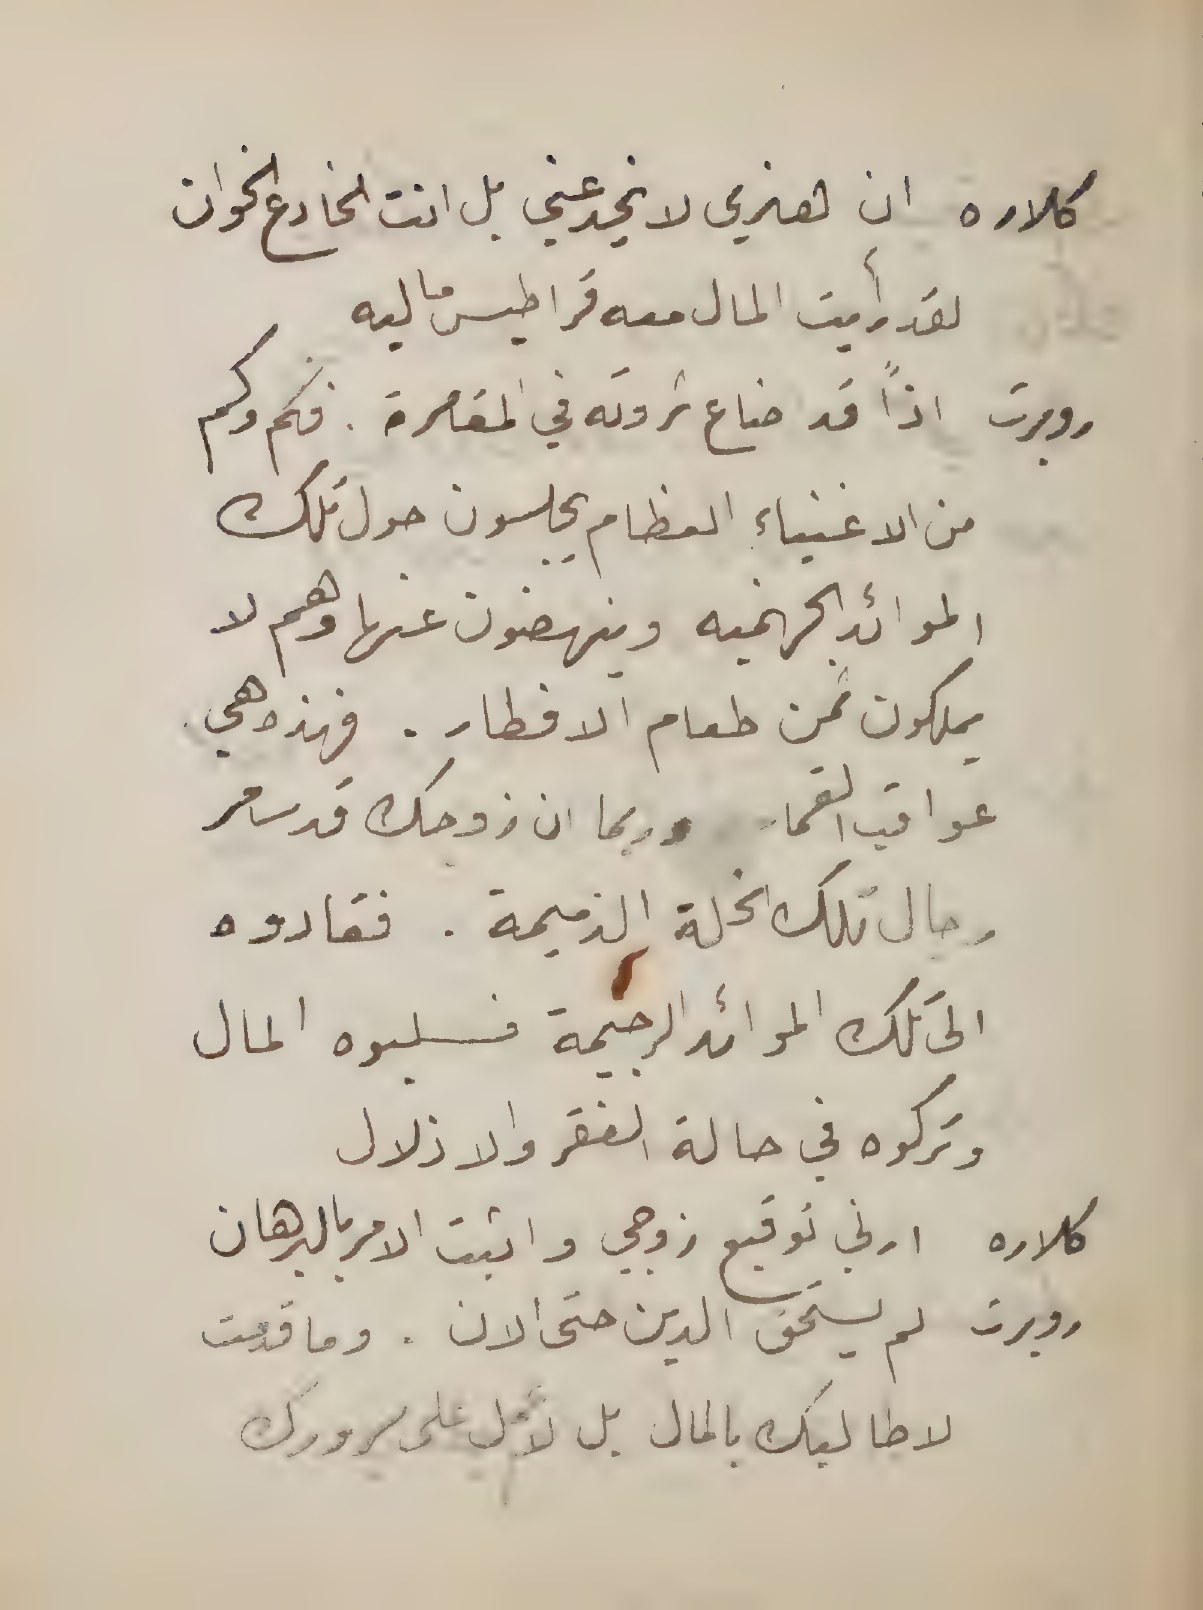 كلاره ان هنري لا يخدعني بل انت الخادع الخوان
لقد رأيت المال معه قراطيس ماليه
روبرت اذاً قد ضاع ثروته في المقامرة . فكم وكم
من الاغنياء العظام يجلسون حول تلك
الموائد الجهنميه وينهضون عنها وهم لا
يملكون ثمن طعام الافطار . فهذه هي
عواقب القمار وربما ان زوجك قد سامر
رجال تلك الخلة الذميمة . فقادوه
الى تلك الموائد الرجيمة فسلبوه المال
وتركوه في حالة الفقر والاذلال
كلاره ارني توقيع زوجي واثبت الامر بالبرهان
روبرت لم يستحق الدين حتى الان . وما قدمت
لاطالبك بالمال بل على سرورك